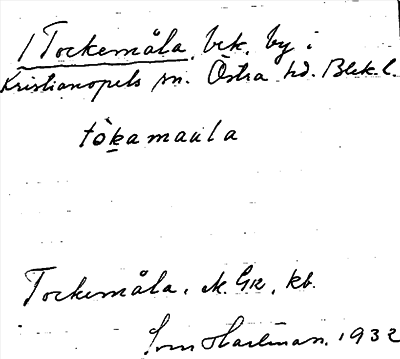 Tockemåla, bek. by i
Kristianopels sn. Östra hd. Blek. l.
tòkamaula
Tockemåla. GK, kb.
Sven Hartman. 1932